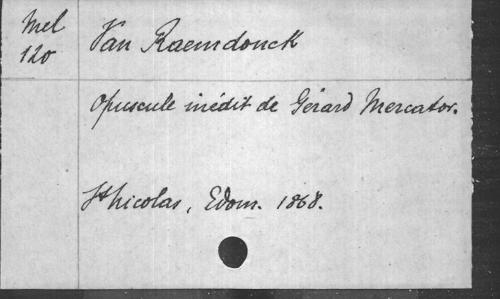 Mel 120
Van Raemdonck
Opuscule inédit de Gérard Mercator.
St Nicolas, Edom. 1868.